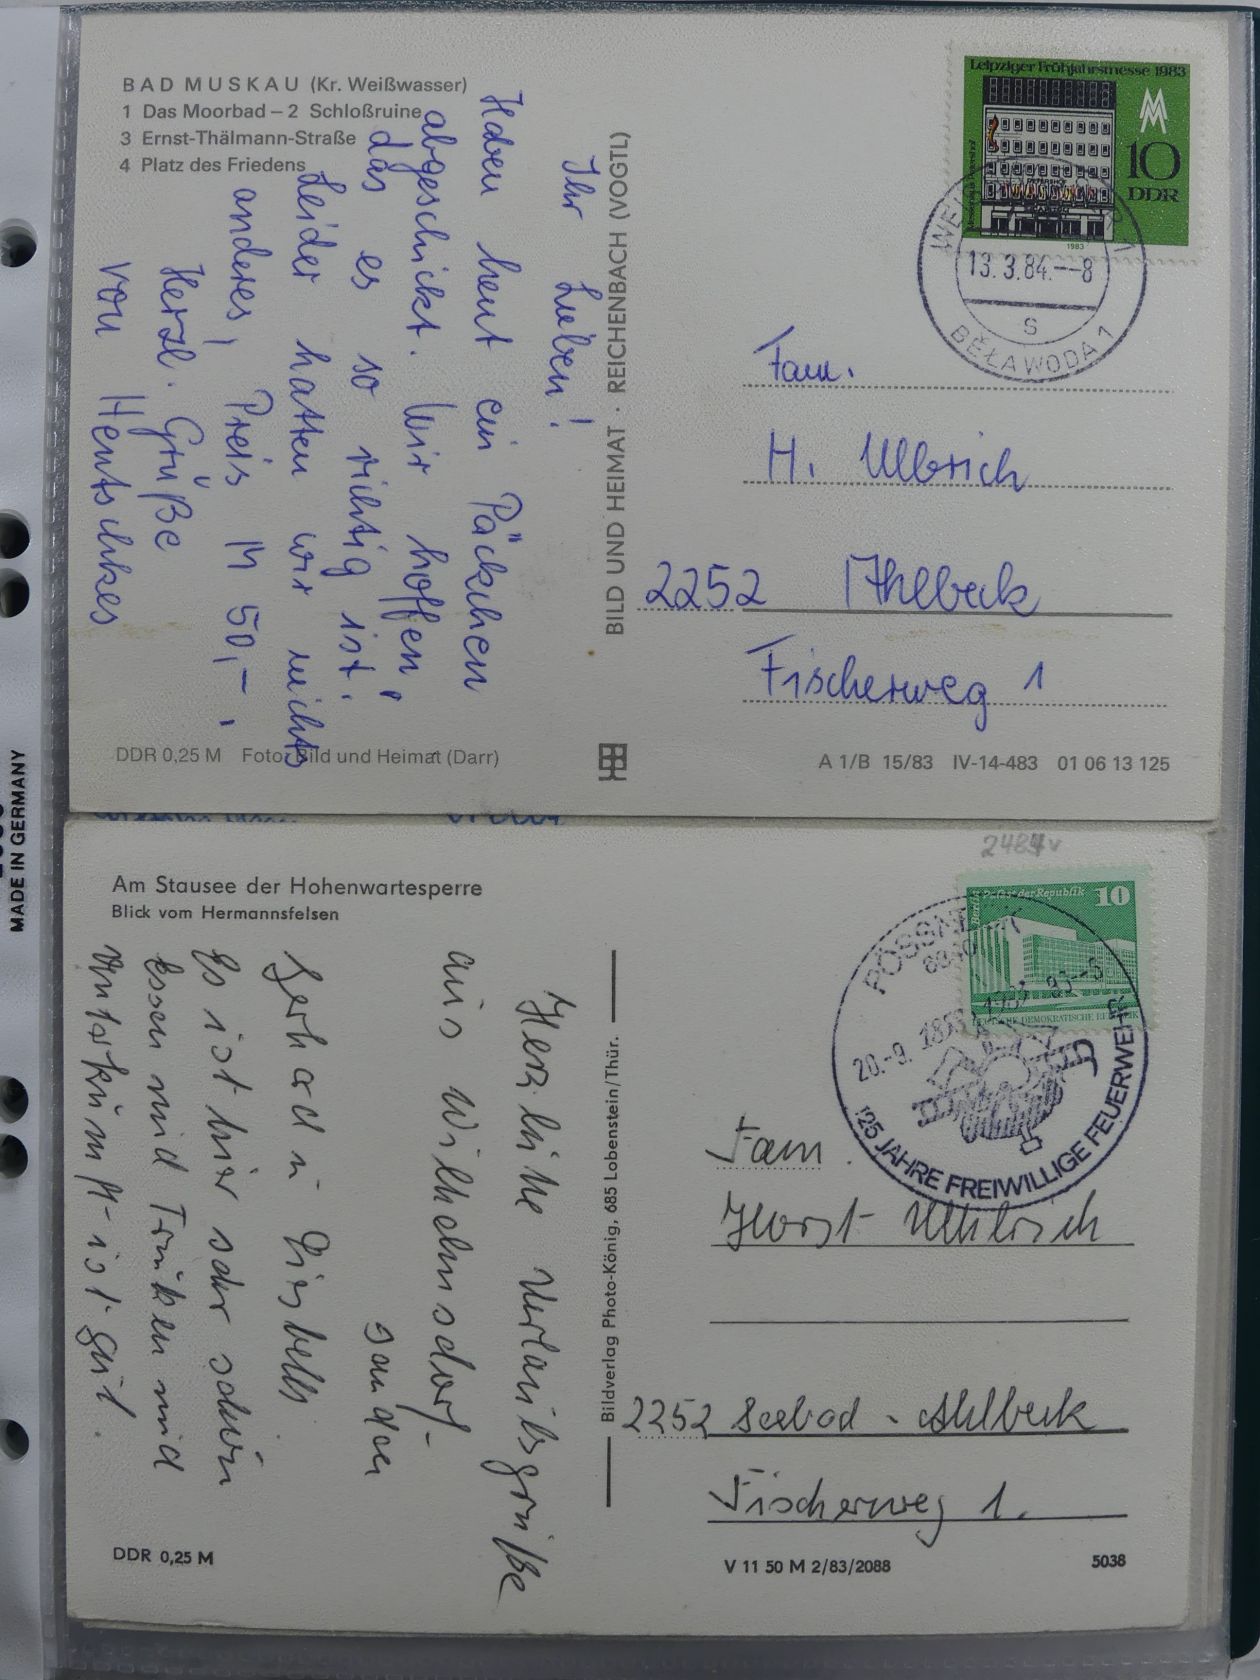 BAD MUSKAU (Kr. Weißwasser)
1 Das Moorbad – 2 Schloßruine
3 Ernst-Thälmann-Straße
4 Platz des Friedens
Ihr Lieben!
Haben heut ein Päckchen
abgeschickt. Wir hoffen,
das es so richtig ist.
Leider hatten wir nichts
anderes, Preis M 50,–,
Herzl. Grüße
von Hentschkes
BILD UND HEIMAT · REICHENBACH (VOGTL)
Leipziger Frühjahrsmesse 1983
10
DDR
1983
13.3.84.--8
S
BĚŁAWODA 1
Fam.
H. Ulbrich
2252 Ahlbeck
Fischerweg 1
DDR 0,25 M Foto: Bild und Heimat (Darr)
A 1/B 15/83 IV-14-483 01 06 13 125
MADE IN GERMANY
Am Stausee der Hohenwartesperre
Blick vom Hermannsfelsen
Herzliche Urlaubsgrüße
aus Wilhelmsdorf
senden
Gerhard u
Es ist hier sehr schön
Essen und Trinken und
Unterkunft ist gut.
Bildverlag Photo-König, 685 Lobenstein/Thür.
Berlin Palast der Republik 10
DEUTSCHE DEMOKRATISCHE REPUBLIK
PÖSSNECK
20.-9. 1858 1983 83--8
125 JAHRE FREIWILLIGE FEUERWEHR
Fam.
Horst Ulbrich
2252 Seebad - Ahlbeck
Fischerweg 1.
DDR 0,25 M
V 11 50 M 2/83/2088
5038